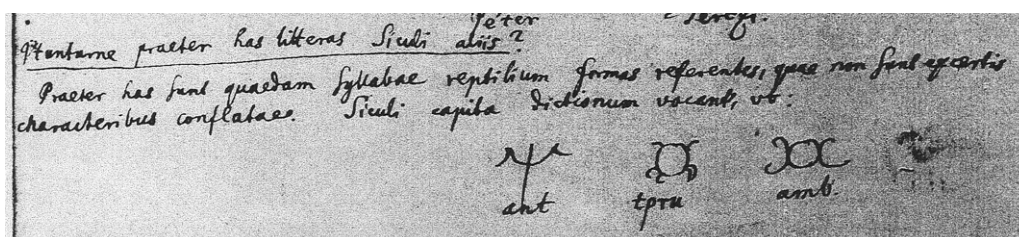 Péter
Utanturne praeter has litteras Siculi aliis?
Praeter has sunt quaedam syllabae reptilium formas referentes, quae non sunt ex certis
characteribus conflatae. Siculi capita dictionum vocant, vt:
ant tpru amb.